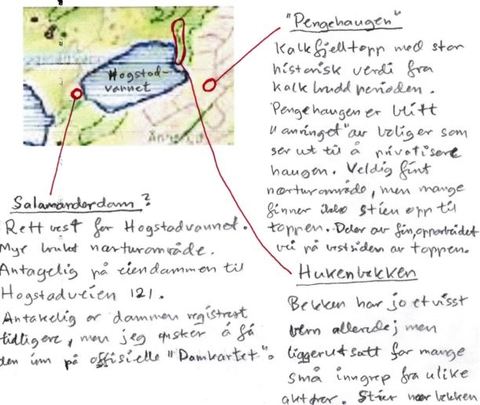 Hogstad-
vannet
"Pengehaugen"
Kalkfjelltopp med stor
historisk verdi fra
kalkbruddperioden.
Pengehaugen er blitt
"omringet" av boliger som
ser ut til å privatisere
haugen. Veldig fint
nærturområde, men mange
finner ikke stien opp til
toppen. Deler av fin, opparbeidet
vei på vestsiden av toppen.
Salamanderdam?
Rett vest for Hogstadvannet.
Mye brukt nærturområde.
Antagelig på eiendammen til
Hogstadveien 121.
Antakelig er dammen registrert
tidligere, men jeg ønsker å få
den inn på offisielle "Damkartet".
Hukenbekken
Bekken har jo et visst
vern allerede, men
ligger utsatt for mange
små inngrep fra ulike
aktører. Stier nær bekken